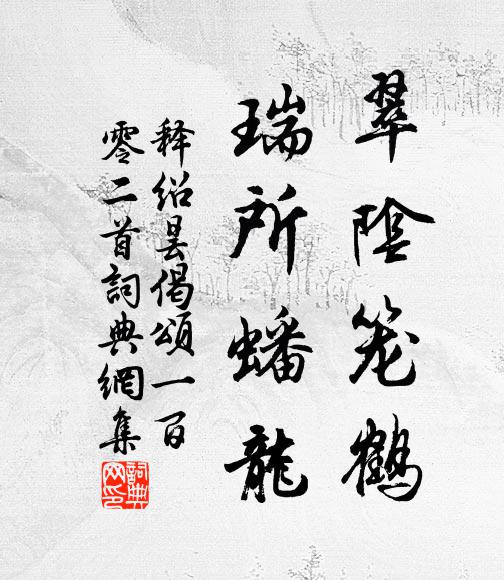 翠陰笼鶴
瑞所蟠龍
释绍昙偈頌一百
零二首詞典網集
詞典
网印